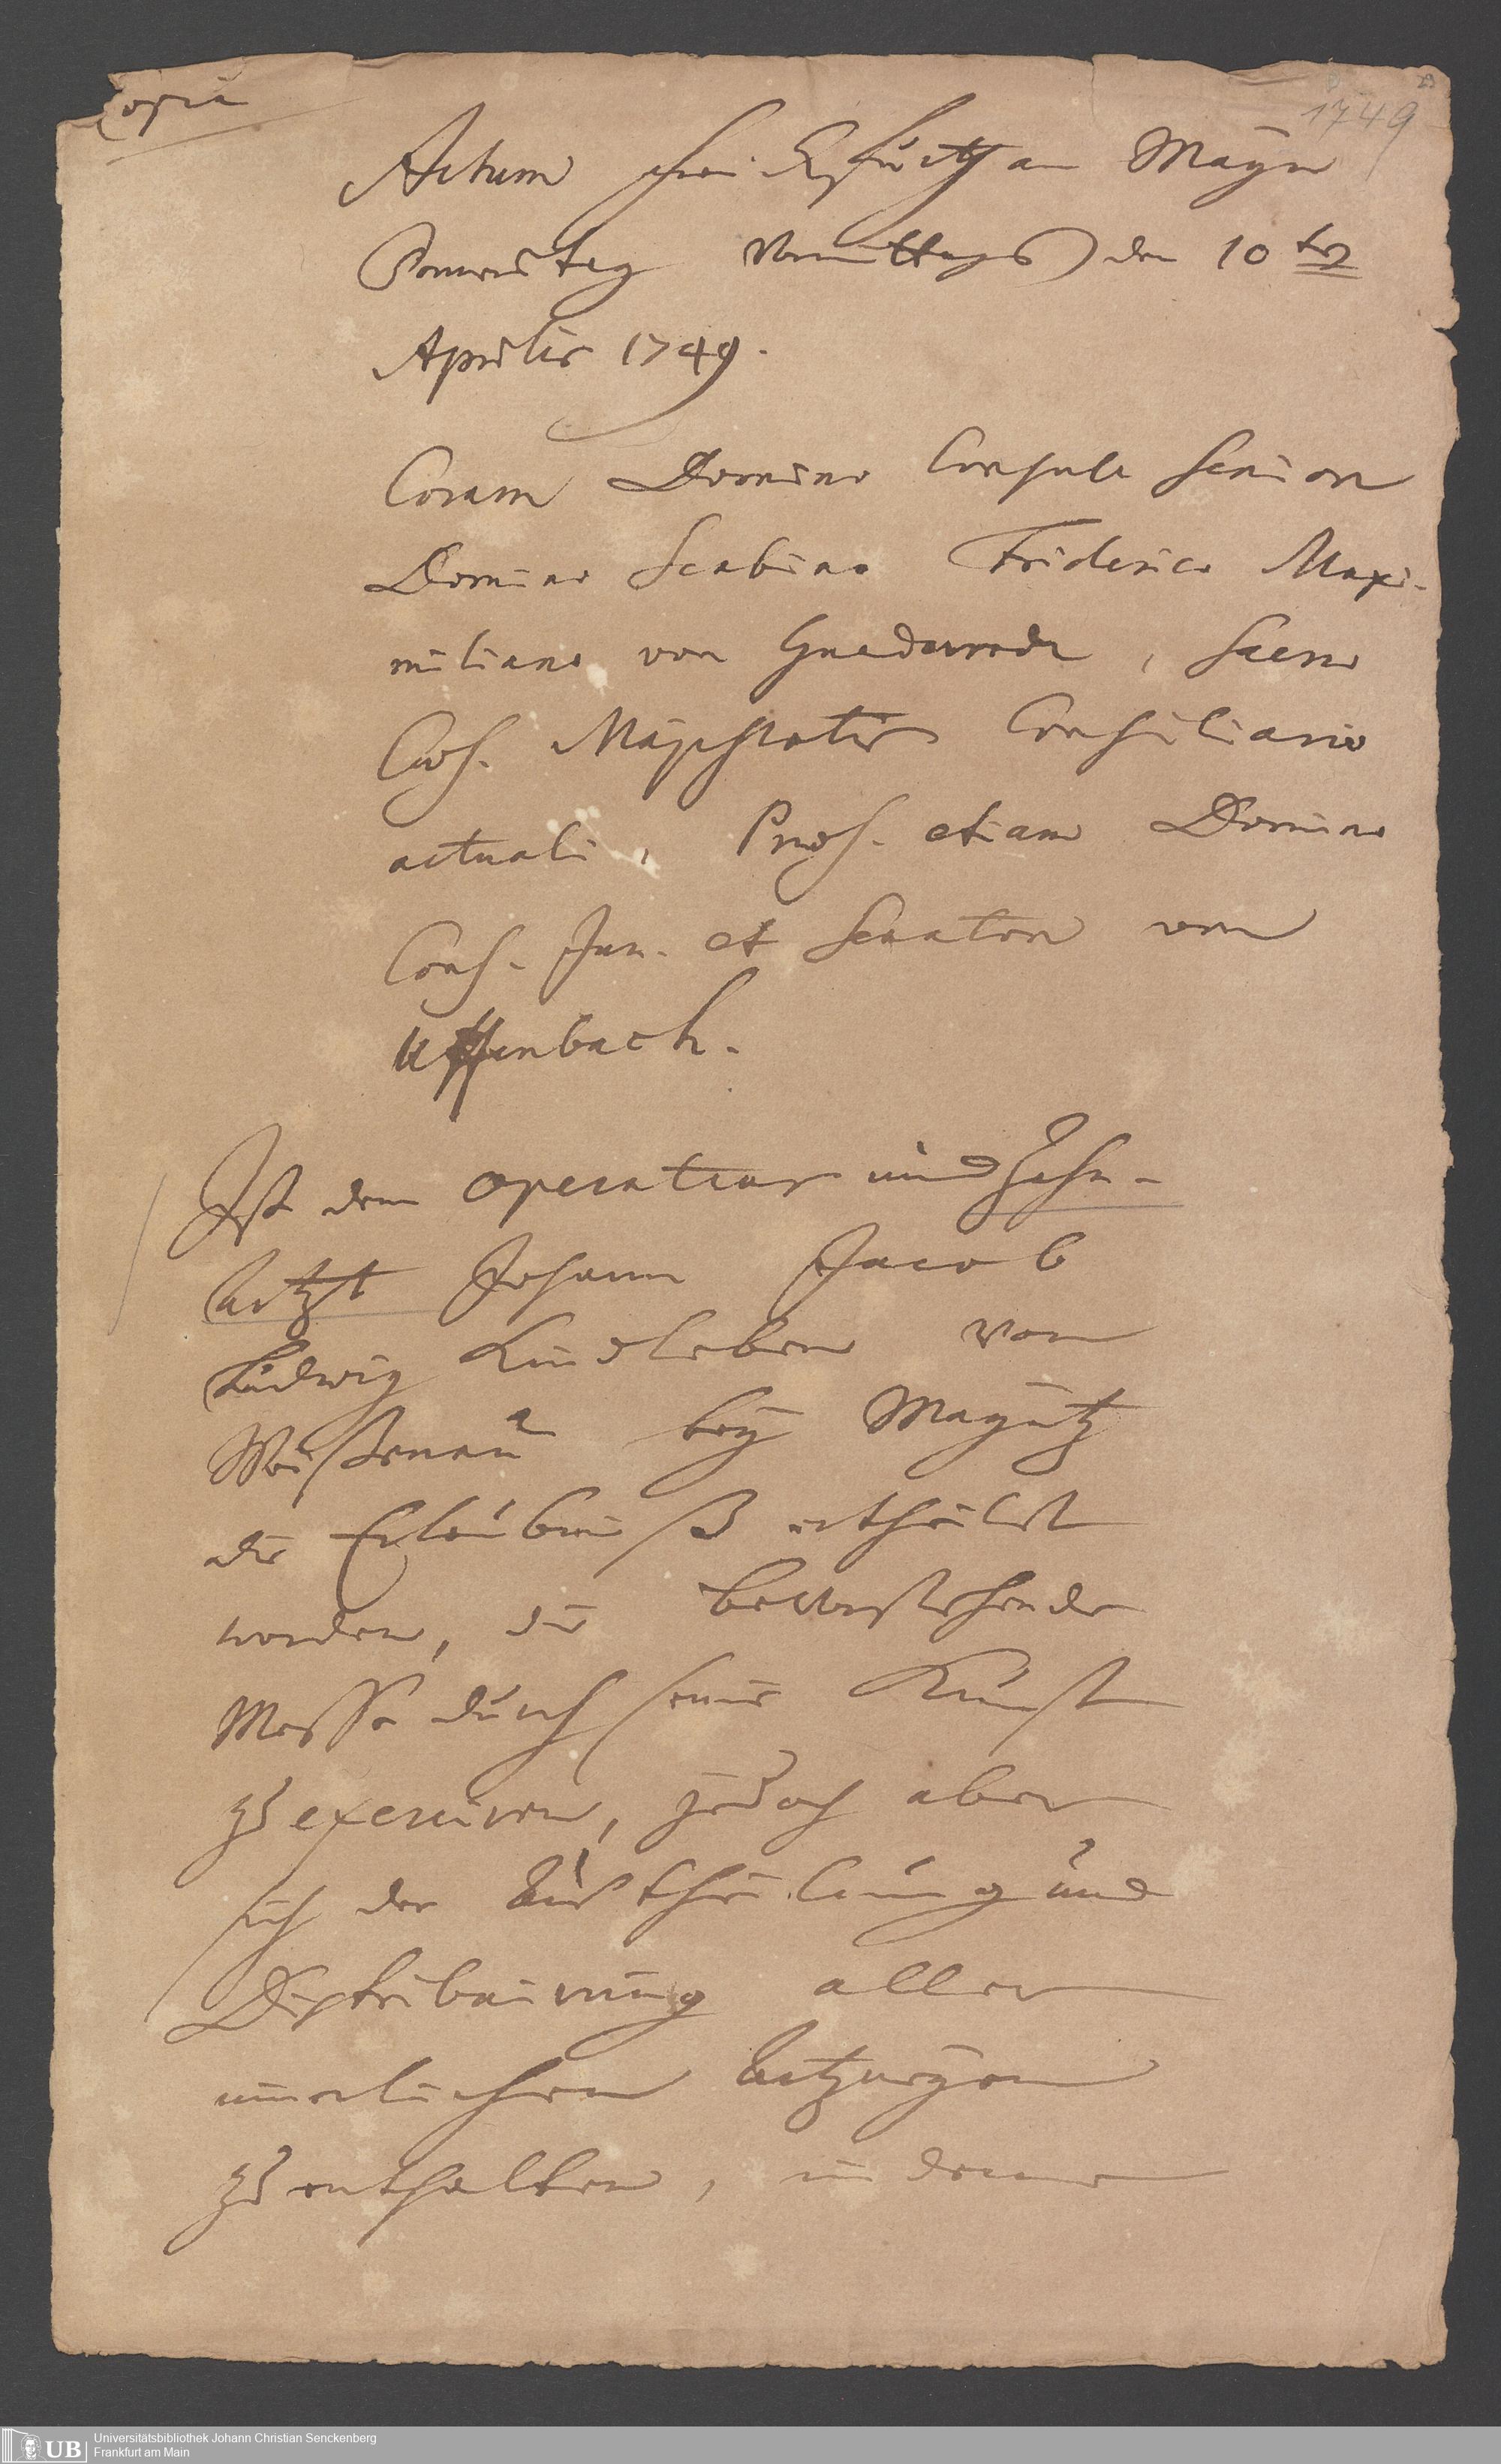 Copia
1749
Actum Franckfurth am Mayn
Donnerstag Vormittags den 10 ten
Aprilis 1749.
Coram Domino Consule seniore
Domino Scabino Friderico Maxi-
miliano von Günderrode, Sacrae
Caes. Majestatis Consiliario
actuali, Praes. etiam Domino
Cons. Jun. et Senatore von
Uffenbach.
Ist dem Operateur und Zahn-
Artzt Johann Jacob
Ludwig Kindleben von
Weißenau bey Mayntz
die Erlaubniß ertheilet
worden, die bevorstehende
Messe durch seine Kunst
zu exerciren, jedoch aber
sich der Austheilung und
Distribuirung aller
innerlichen Artzneyen
zu enthalten, in deme
Universitätsbibliothek Johann Christian Senckenberg
UB Frankfurt am Main